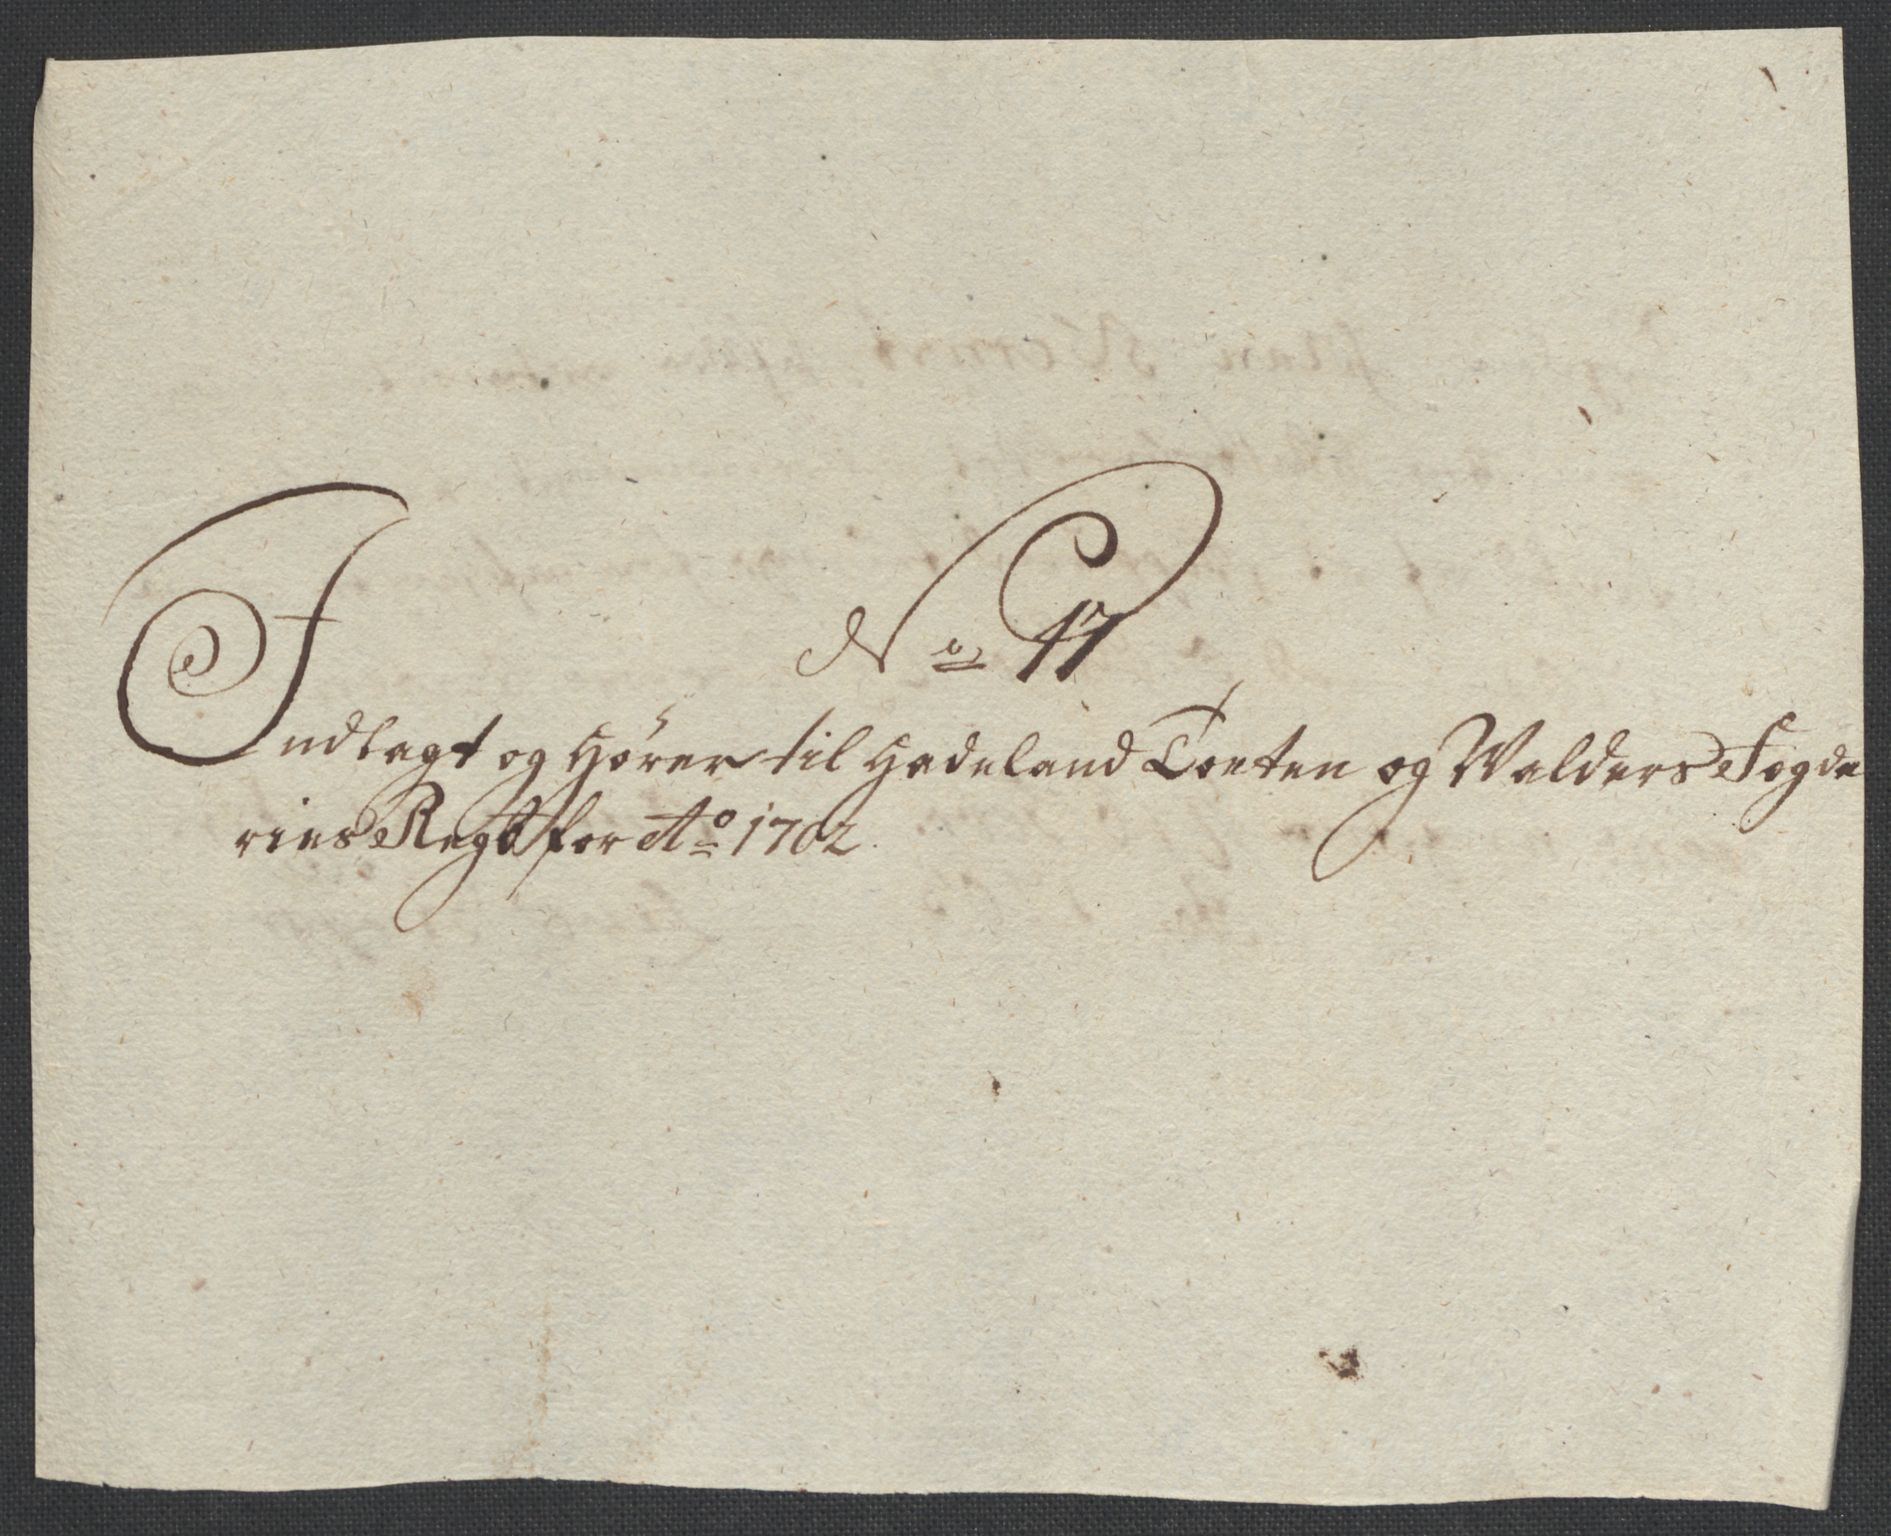 No 17
Indlagt og Hörer til Hadeland Toeten og Walders Fogde
ries Regb for Ao 1702.